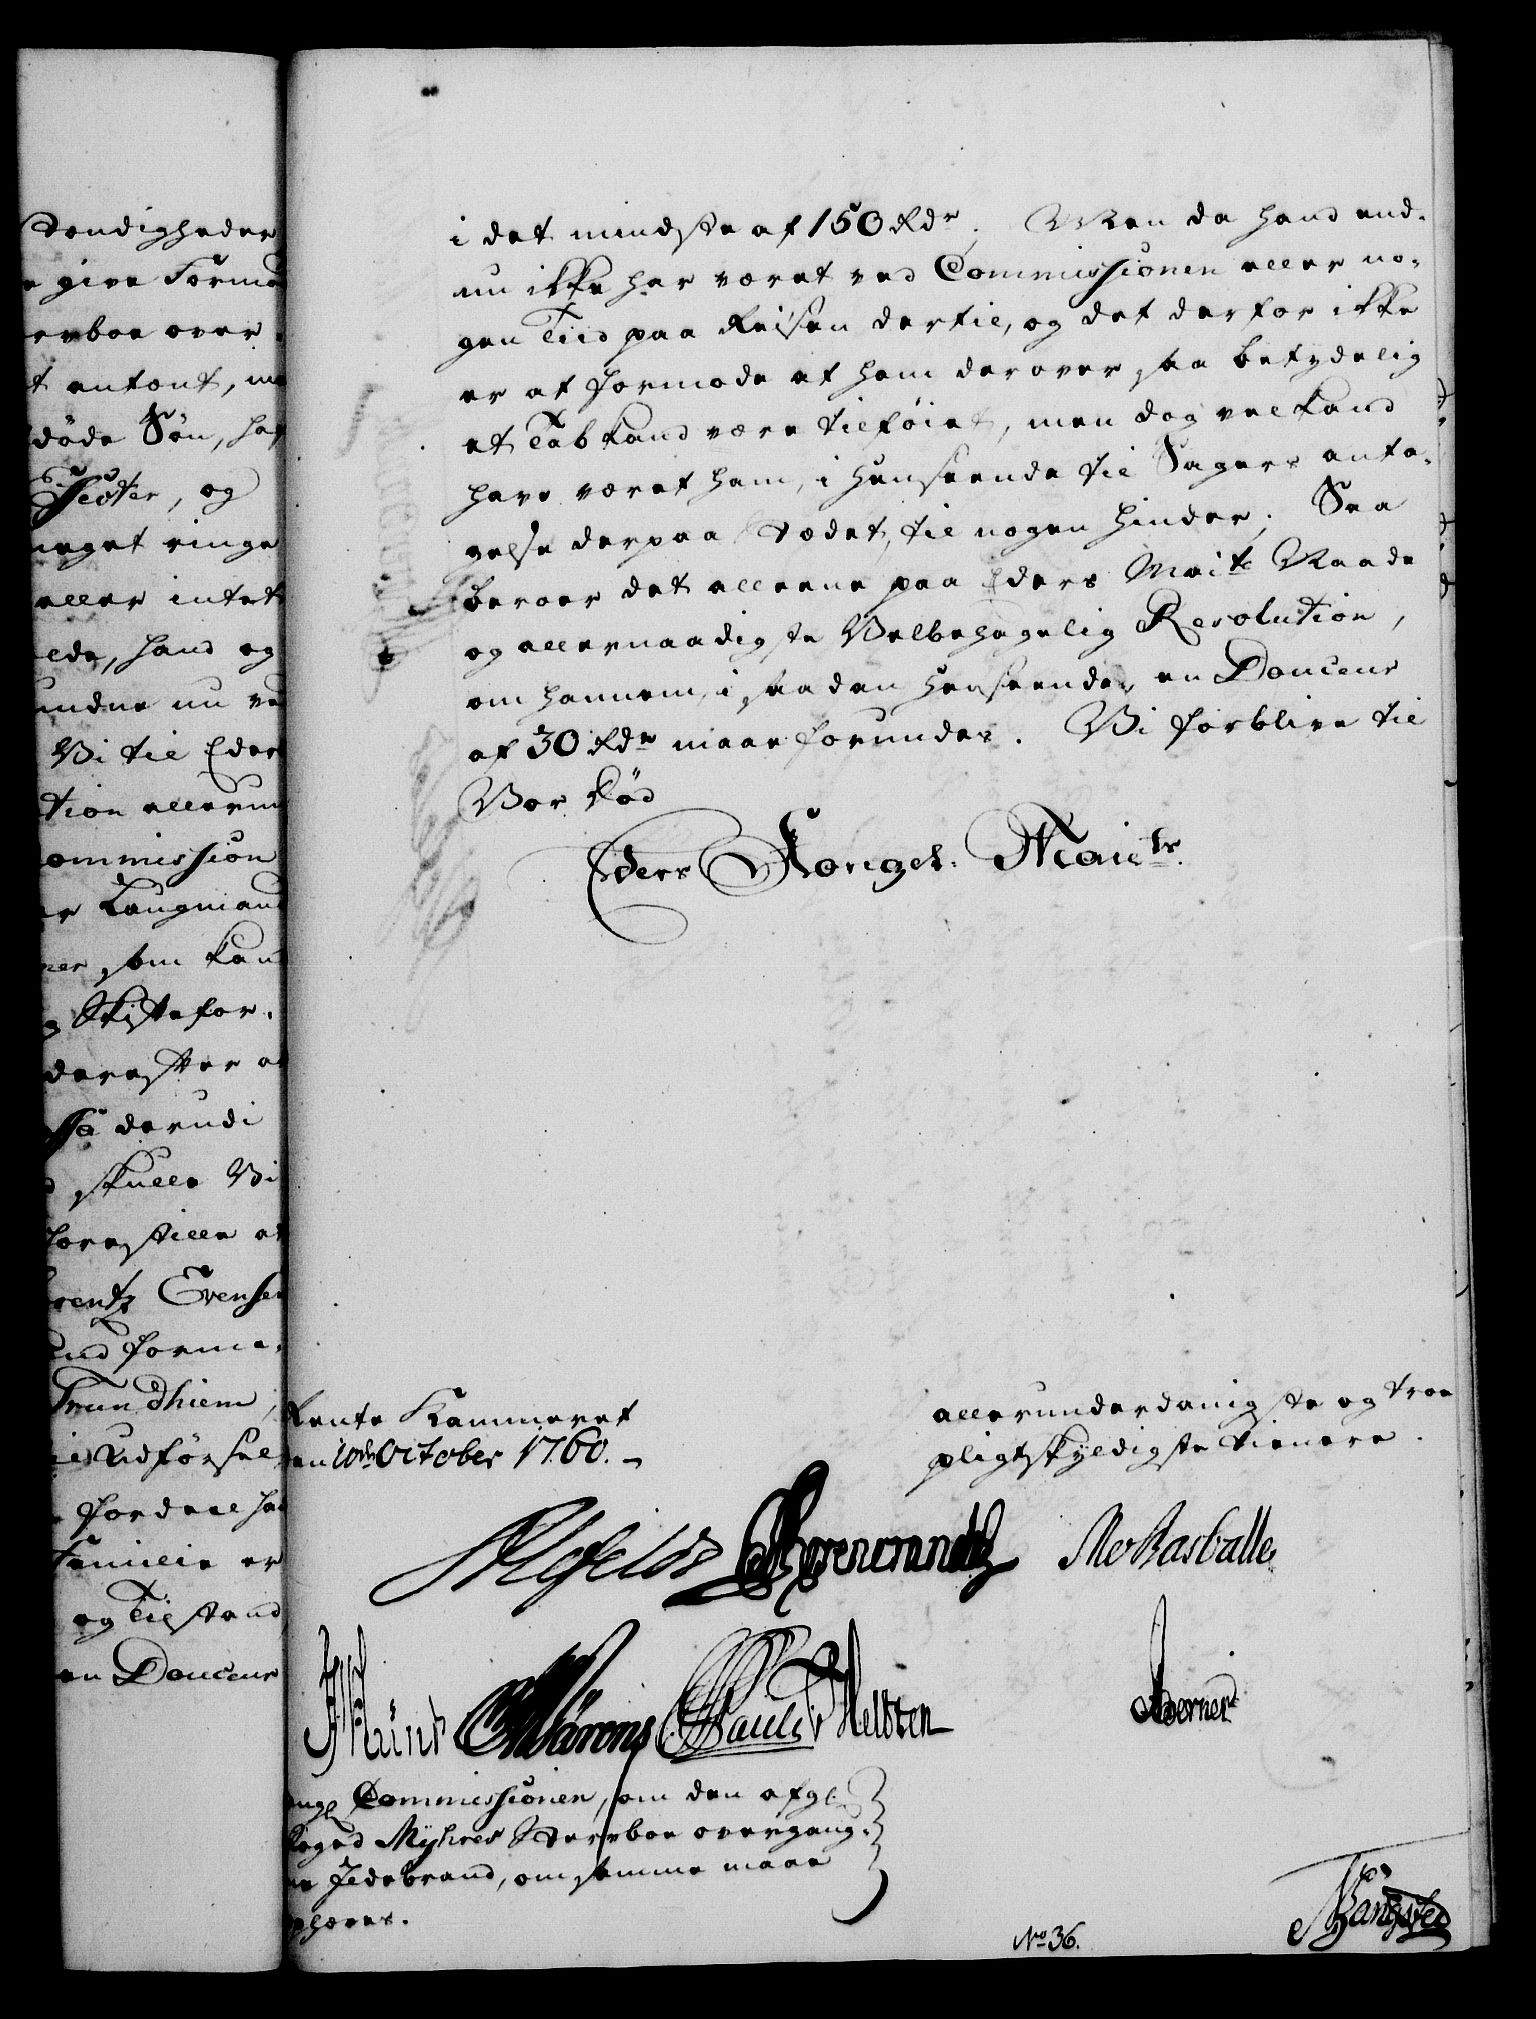 tændigheder
give Forma
erboe over
t antont, me
döde Søn, haf
Skifter, og
meget ringe
eller intet
elde, hand og
endnu nu ve
Vi til Eder
tion allerun
ommission
er Laugmand
ner som kand
Skiftefor-
derefter at
derudi
skulle Vi
forestille at
rentz Evensen
and forme-
Trundhiem,
Udførsel
fordeel ha
Familie er
og Tilstand
en Douceur
i det mindste af 150 Rdr. Men da hand end-
nu ikke har været ved Commissionen eller no-
gen Tiid paa Reisen dertil, og det derfor ikke
er at formode at ham derover saa betydelig
et Tab kand være tilføiet, men dog vel kand
have været ham, i Henseende til Sagers anta-
gelse derpaa Stædet, til nogen hinder; Saa
beroer det alleene paa Eders Maits Naade
og allernaadigste Velbehagelig Resolution,
om hannem, i saadan Henseende, en Douceur
af 30 Rdr maae forundes. Vi forblive til
Vor Død
Eders Kongel. Maits.
Rente Kammeret
en 10de October 1760.
allerunderdanigste og troe
pligtskyldigste tienere.
Ahlefeldt Ehrencrandtz MvRasballe
Münt Mörens Pauls v Helbsen Berner
ongl Commissionen, om den afg:
foged Myhres Sterboe overgang-
ne Jldebrand, om samme maae
ophæves.
No 36.
Bangsted